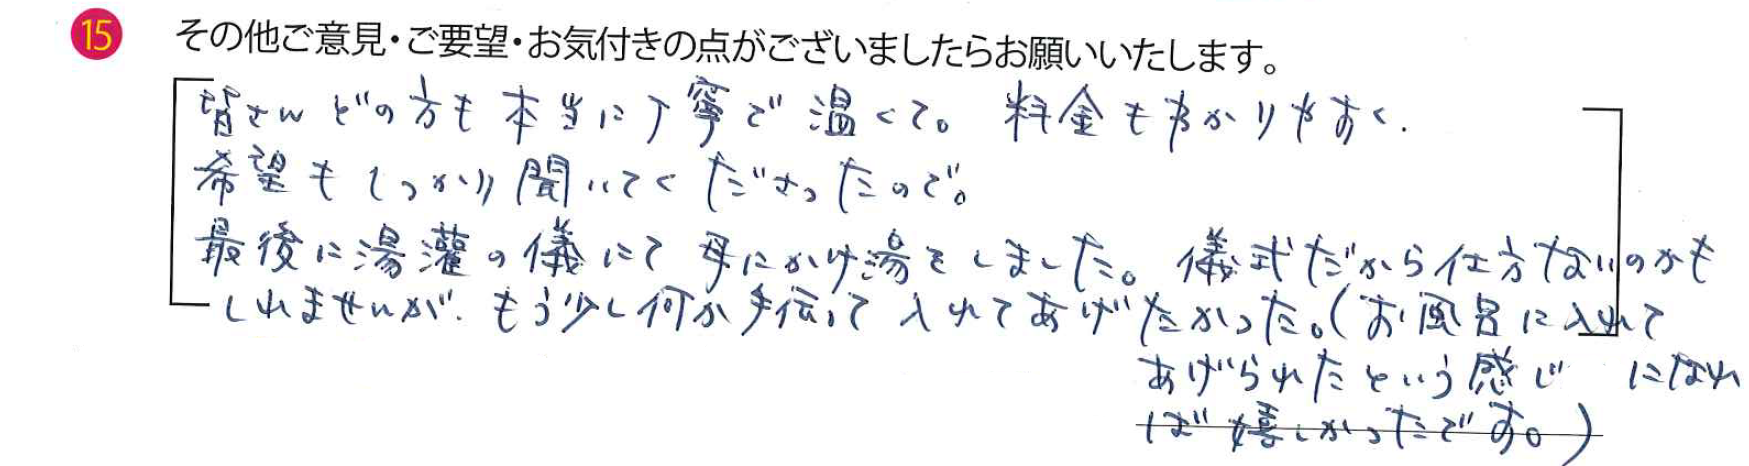 15 その他ご意見・ご要望・お気付きの点がございましたらお願いいたします。
皆さんどの方も本当に丁寧で温くて。料金もわかりやすく.
希望もしっかり聞いてくださったので。
最後に湯灌の儀にて母にかけ湯をしました。儀式だから仕方ないのかも
しれませんが.もう少し何か手伝って入れてあげたかった。(お風呂に入れて
あげられたという感じになれ
ば嬉しかったです。)